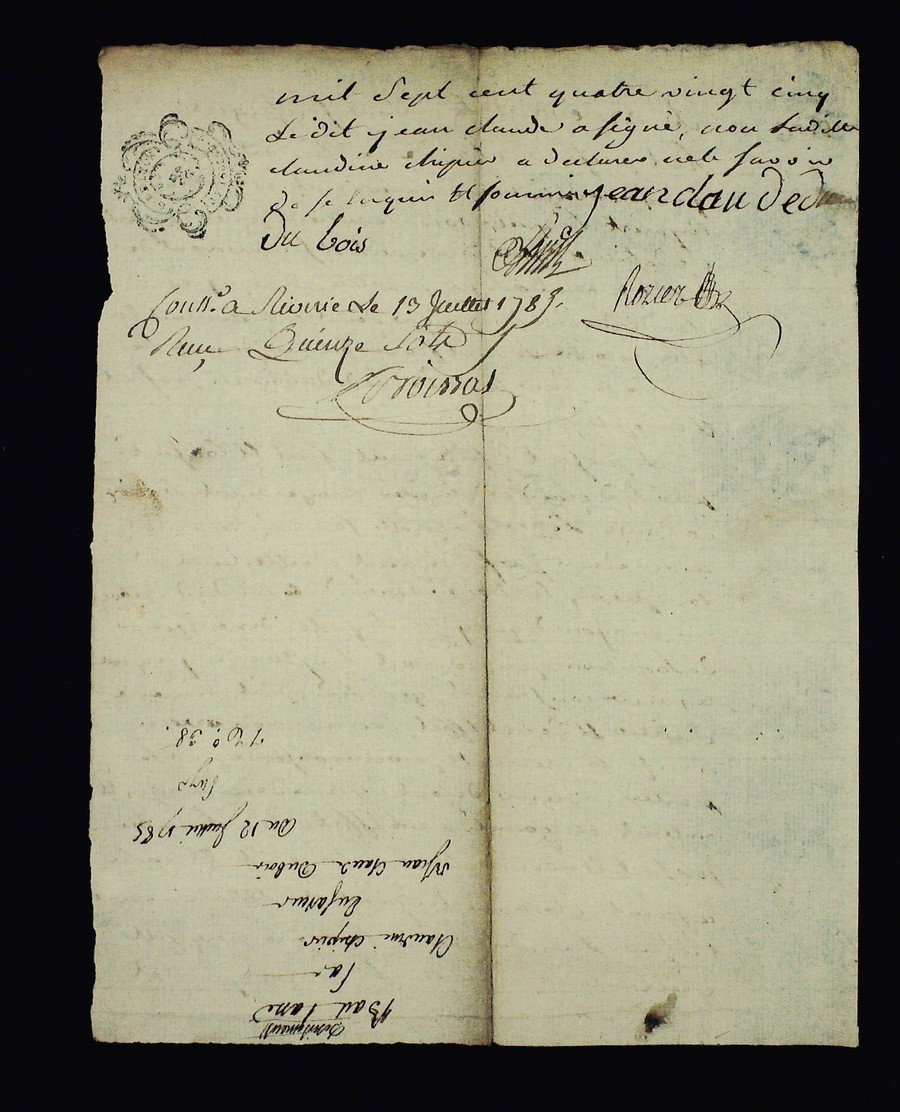 mil Sept cent quatre vingt cinq
Ledit jean claude a signé, non Ladite
claudine chipier a declarer ne le savoir
de ce Enquis Et sommée jean claude du
Du bois
Rozier
Con.lle a Riverie Le 13 Juillet 1785.
Reçu Quinze Sols
Desistement
Bail Passé
Par
Claudine chipier
En faveur
De jean Claude Dubois
Du 12 Juillet 1785
N.o 38.